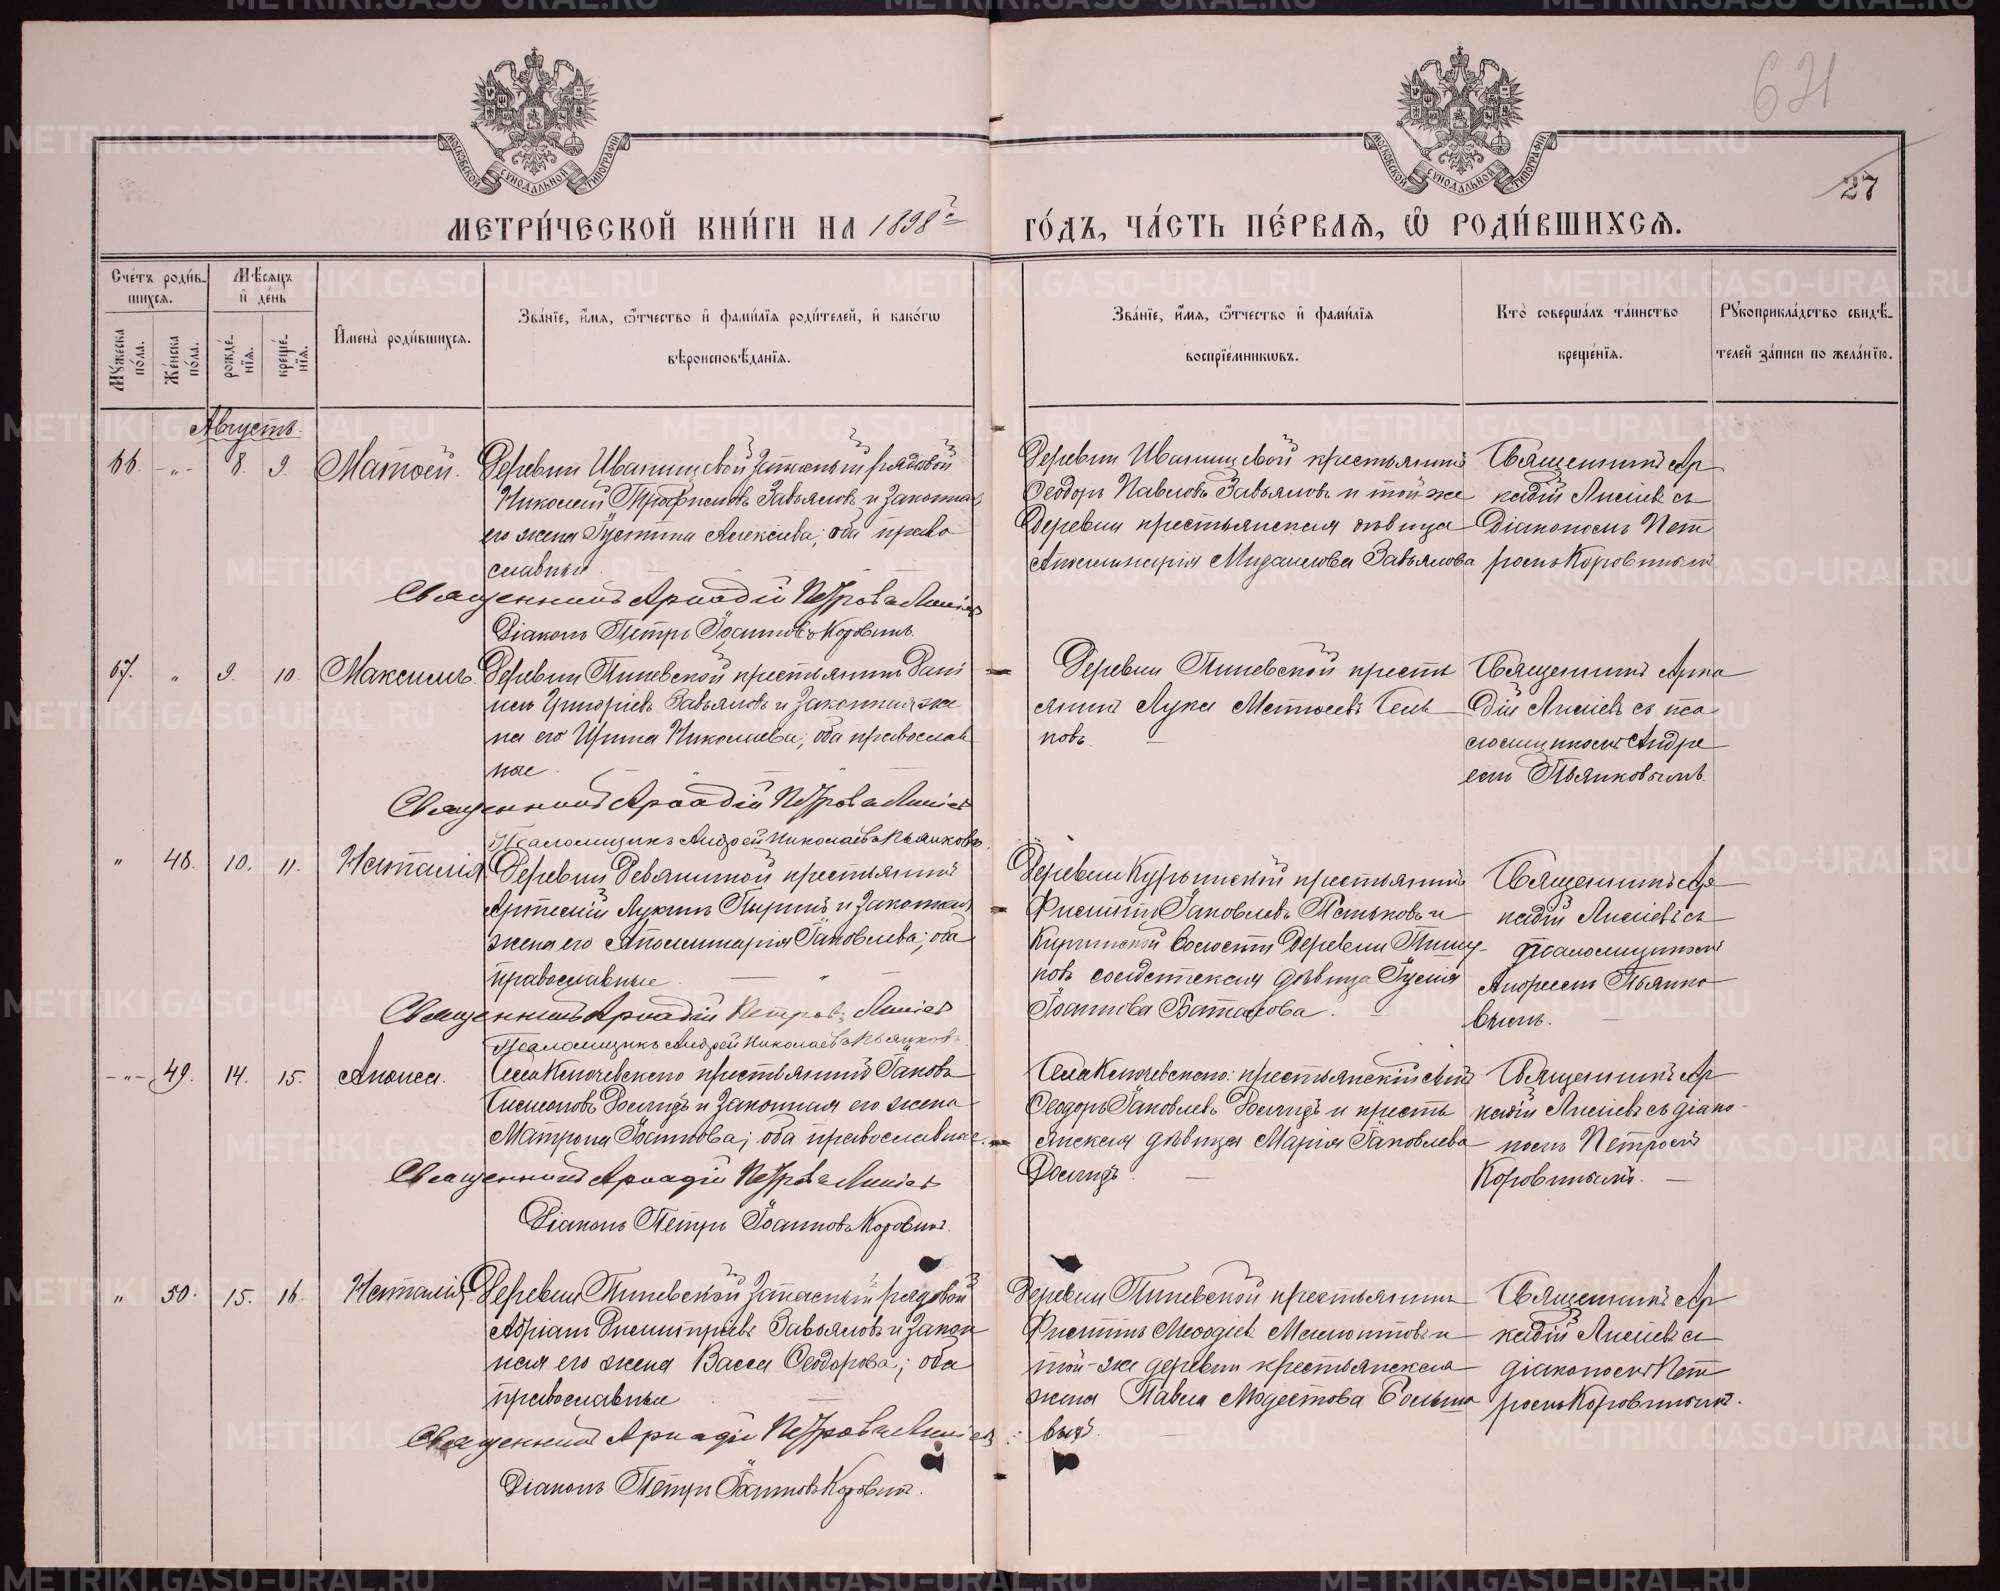 621
27
МОСКОВСКОЙ СУНОДАЛЬНОЙ ТИПОГРАФІИ
МОСКОВСКОЙ СУНОДАЛЬНОЙ ТИПОГРАФІИ
МЕТРИ́ЧЕСКОЙ КНИ́ГИ НА 1898 ГО́ДЪ, ЧА́СТЬ ПЕ́РВАЯ, Ѿ РОДИ́ВШИХСЯ.
Сче́тъ роди́вшихся.
Мѣ́сяцъ и҆ де́нь
Мꙋ́жеска по́ла.
Же́нска по́ла.
рожде́нїя.
креще́нїя.
И҆мена̀ роди́вшихся.
Зва́нїе, и҆́мя, ѻ҆́тчество и҆ фами́лїя роди́телей, и҆ како́гѡ
вѣроисповѣ́данїя.
Зва́нїе, и҆́мя, ѻ҆́тчество и҆ фами́лїя
воспрїе́мникѡвъ.
Кто̀ соверша́лъ та́инство
креще́нїя.
Рꙋкоприкла́дство свидѣ́-
телей за́писи по жела́нїю.
Августъ.
66. -"- 8. 9. Матѳей.
Деревни Иванищевой запасный рядовой
Николай Трофимовъ Завьяловъ и законная
его жена Іустина Алексіева; оба право
славные
Священникъ Аркадій Петровъ
Діаконъ Петръ Іоанновъ Коровинъ.
Деревни Иванищевой крестьянинъ
Ѳеодоръ Павловъ Завьяловъ и той-же
деревни крестьянская дѣвица
Аполлинарія Завьялова
Священникъ Ар
кадій съ
Діакономъ Пет
ромъ Коровинымъ
67. " 9. 10. Максимъ.
Деревни крестьянинъ Дані
илъ Григоріевъ Завьяловъ и законная же
на его Ирина Николаева; оба православ
ные.
Священникъ Аркадій Петровъ
Псаломщикъ Андрей Николаевъ Пьянковъ.
Деревни кресть
янинъ Лука Матѳеевъ
новъ.
Священникъ Арка
дій съ пса
ломщикомъ Андре
емъ Пьянковымъ.
" 48. 10. 11. Наталія
Деревни Девяниной крестьянинъ
Артемій Лукинъ и законная
жена его Аполлинарія Іаковлева; оба
православные
Священникъ Аркадій Петровъ
Псаломщикъ Андрей Николаевъ Пьянковъ.
Деревни Курьинской крестьянинъ
Филиппъ Іаковлевъ Пеньковъ и
Киргинской волости деревни
ковъ солдатская дѣвица
Іоаннова Баталова.
Священникъ Ар
кадій съ
псаломщикомъ
Андреемъ Пьянко
вымъ.
-"- 49. 14. 15. Анѳиса.
Села Ключевскаго крестьянинъ Іаковъ
Симеоновъ и законная его жена
Матрона Іоаннова; оба православные.
Священникъ Аркадій Петровъ
Діаконъ Петръ Іоанновъ Коровинъ.
Села Ключевского: крестьянскій сынъ
Ѳеодоръ Іаковлевъ и кресть
янская дѣвица Марія Іаковлева
Священникъ Ар
кадій съ діако-
номъ Петромъ
Коровинымъ.
" 50. 15. 16. Наталія
Деревни запасный рядовой
Адріанъ Димитріевъ Завьяловъ и закон
ная его жена Васса Ѳеодорова; оба
православные
Священникъ Аркадій Петровъ
Діаконъ Петръ Іоанновъ Коровинъ.
Деревни крестьянинъ
Филиппъ Меѳодіевъ и
той-же деревни крестьянская
жена Павла Модестова
выхъ.
Священникъ Ар
кадій съ
діакономъ Пет
ромъ Коровинымъ.
METRIKI.GASO-URAL.RU